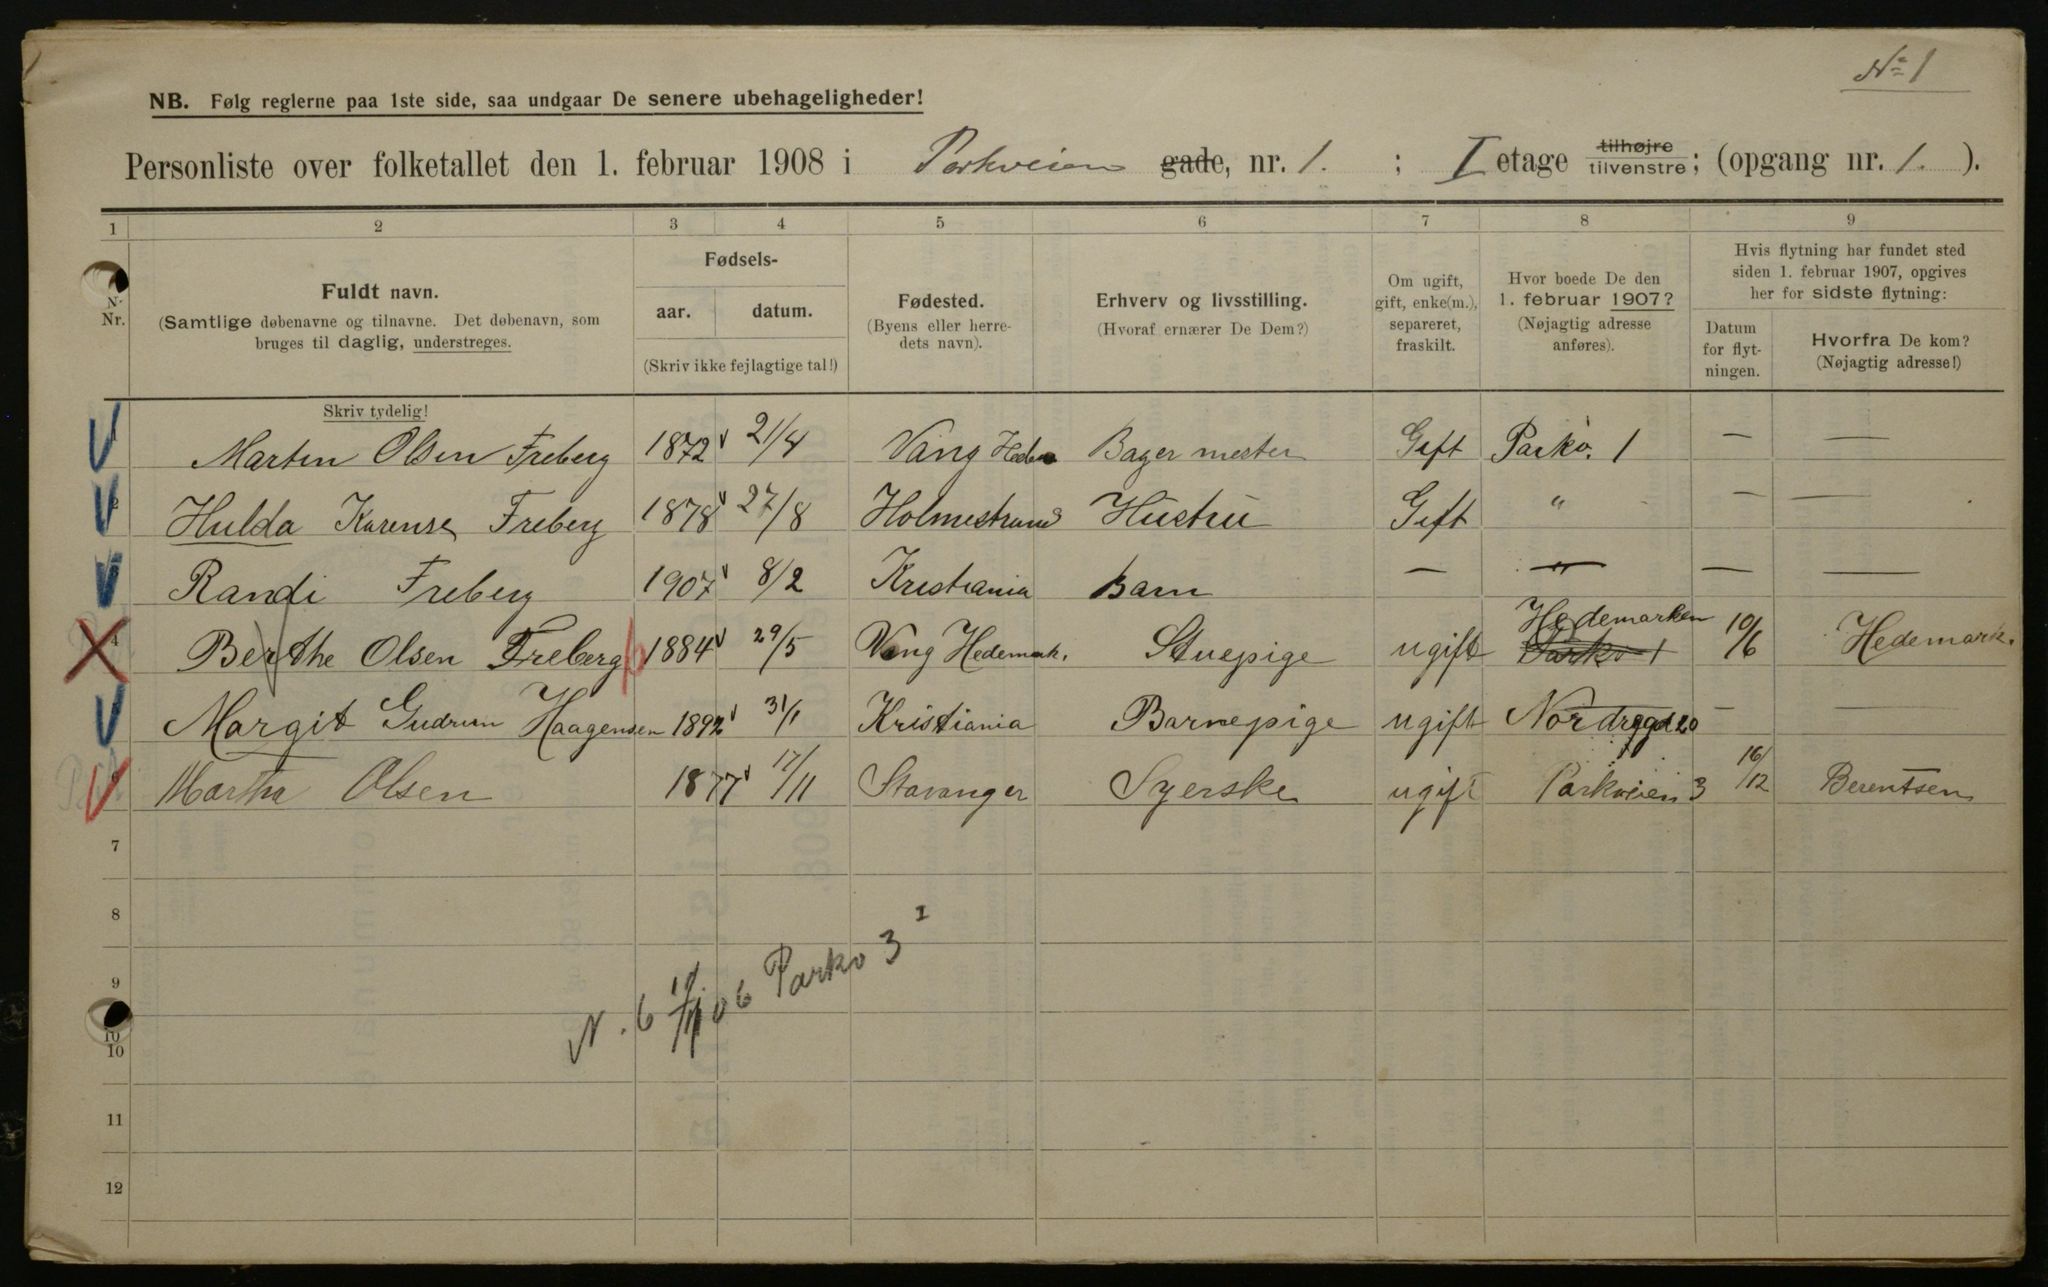 № 1
NB. Følg reglerne paa 1ste side, saa undgaar De senere ubehageligheder!
Personliste over folketallet den 1. februar 1908 i Parkveien gade, nr. 1. ; I etage tilhøjre tilvenstre; (opgang nr. 1. ).
1 2 3 4 5 6 7 8 9
Nr. Nr.
Fuldt navn.
(Samtlige døbenavne og tilnavne. Det døbenavn, som
bruges til daglig, understreges.
Skriv tydelig!
Fødsels-
aar. datum.
(Skriv ikke fejlagtige tal!)
Fødested.
(Byens eller herre-
dets navn).
Erhverv og livsstilling.
(Hvoraf ernærer De Dem?)
Om ugift,
gift, enke(m.),
separeret,
fraskilt.
Hvor boede De den
1. februar 1907?
(Nøjagtig adresse
anføres).
Hvis flytning har fundet sted
siden 1. februar 1907, opgives
her for sidste flytning:
Datum
for flyt-
ningen.
Hvorfra De kom?
(Nøjagtig adresse!)
Martin Olsen Freberg 1872 21/4 Vang Hedm Bager mester Gift Parkv. 1 — —
Hulda Karense Freberg 1878 27/8 Holmestrand Hustru Gift " — —
Randi Freberg 1907 8/2 Kristiania Barn — — — —
4 Berthe Olsen Freberg 1884 29/5 Vang Hedemark. Stuepige ugift Hedemarken Parkv 1 10/6 Hedemark.
Margit Gudrun Haagensen 1892 31/1 Kristiania Barnepige ugift Nordregd 20 — —
Martha Olsen 1877 17/11 Stavanger Syerske ugift Parkveien 3 16/12 Berentsen
7
8
9
10
10
11
12
N. 6 06 Parkv 3 I